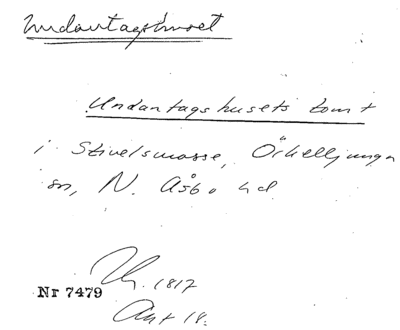 Undantagshuset
Undantagshusets tomt
i Stivelsmosse, Örkelljunga
sn, N. Åsbo hd
Th. 1817
Nr 7479
Ant 18.